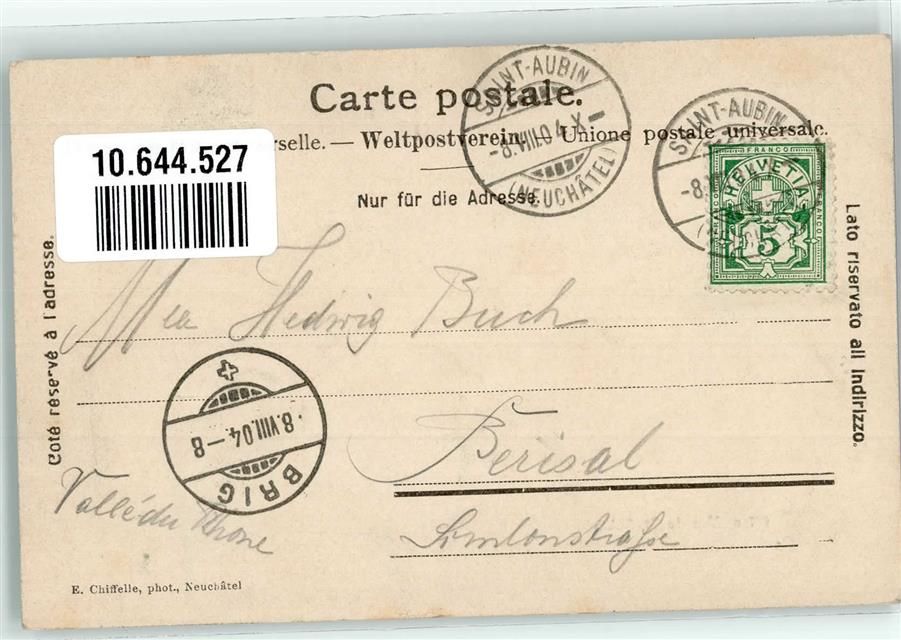 Carte postale.
rselle. — Weltpostverein. — Unione postale universale.
Nur für die Adresse.
10.644.527
SAINT-AUBIN
-8.VIII.04-X-
(NEUCHÂTEL)
SAINT-AUBIN
-8.
FRANCO
HELVETIA
FRANCO
FRANCO
5
Côté réservé à l'adresse.
Lato riservato all indirizzo.
Hedwig Buch
BRIG
8.VIII.04-8
Berisal
Vallé du Rhone
Simlonstraße
E. Chiffelle, phot., Neuchâtel